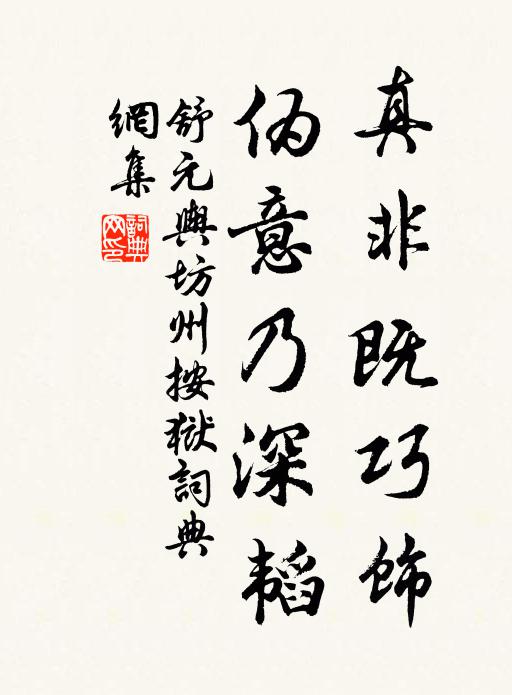 真非既巧飾
偽意乃深韜
舒元輿坊州按獄詞典
網集
詞典
网印